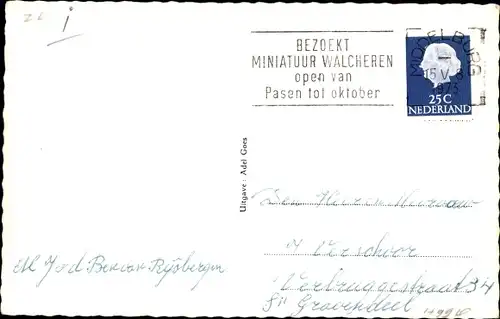 BEZOEKT
MINIATUUR WALCHEREN
open van
Pasen tot oktober
MIDDELBURG
15 V 8
1973
25 C
NEDERLAND
Uitgave: Adel Goes
Den Heer en Mevrouw
Verschoor
Verbruggestraat 34
Gravendeel